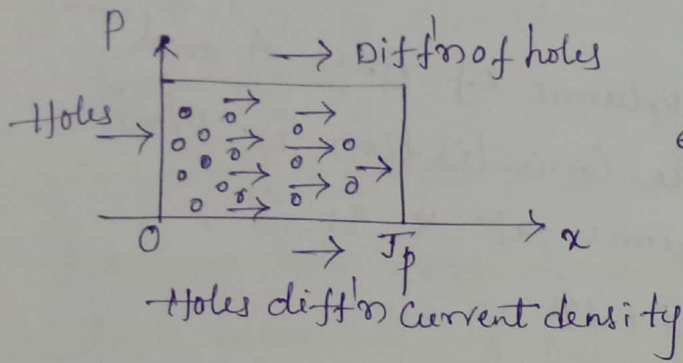 P
→ Diff'n of holes
Holes
O
x
→ Jp
Holes diff'n Current density